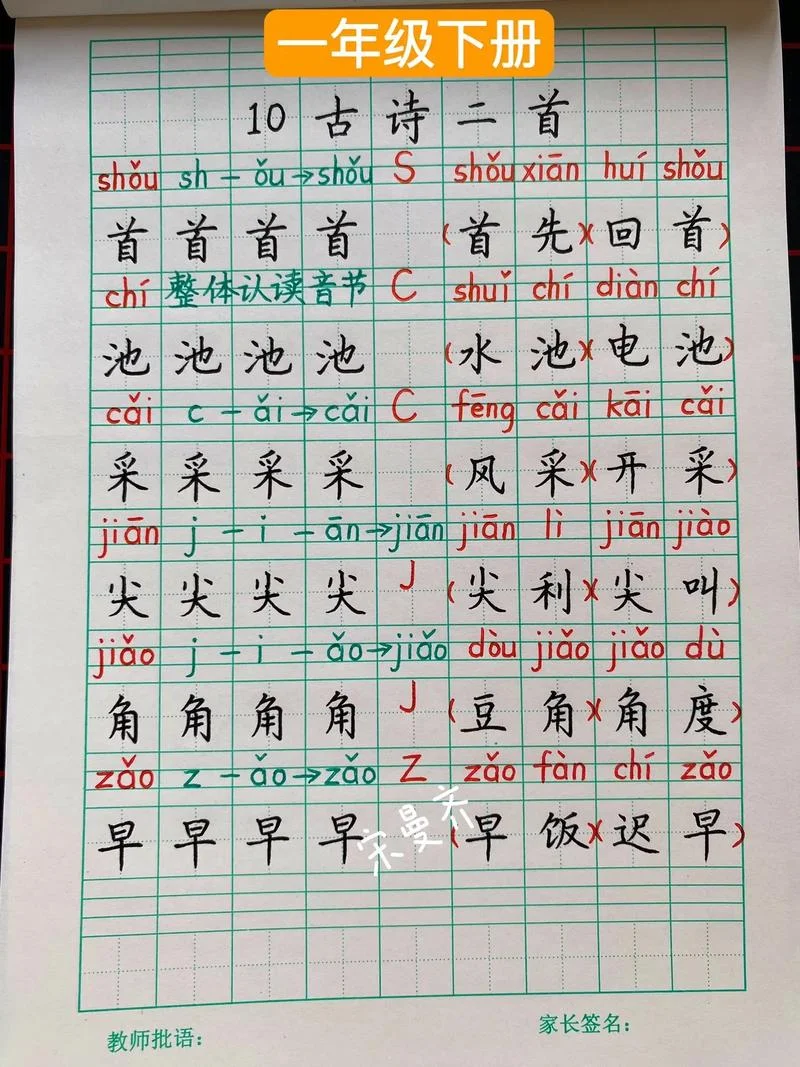 一年级下册
10 古诗二首
shǒu sh - ǒu → shǒu S shǒu xiān huí shǒu
首 首 首 首 (首先)(回首)
chí 整体认读音节 C shuǐ chí diàn chí
池 池 池 池 (水池)(电池)
cǎi c - ǎi → cǎi C fēng cǎi kāi cǎi
采 采 采 采 (风采)(开采)
jiān j - i - ān → jiān jiān lì jiān jiào
尖 尖 尖 尖 J (尖利)(尖叫)
jiǎo j - i - ǎo → jiǎo dòu jiǎo jiǎo dù
角 角 角 角 J (豆角)(角度)
zǎo z - ǎo → zǎo Z zǎo fàn chí zǎo
早 早 早 早 (早饭)(迟早)
宋曼齐
教师批语: 家长签名: